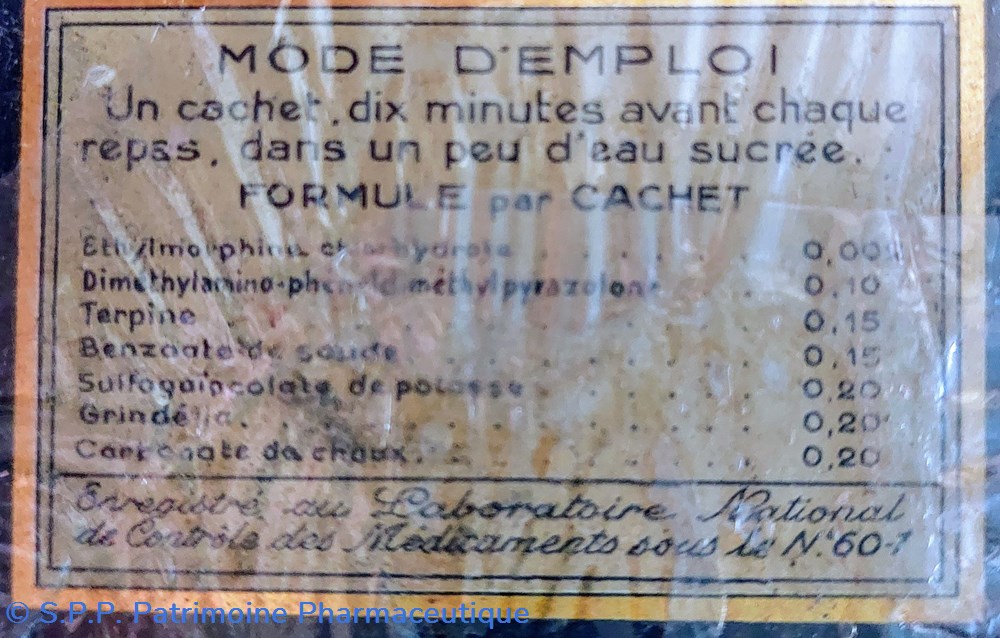 MODE D'EMPLOI
Un cachet, dix minutes avant chaque
repas, dans un peu d'eau sucrée.
FORMULE par CACHET
Ethylmorphine chlorhydrate . . . . . . 0,00
Diméthylamino-phényldiméthylpyrazolone . . . 0,10
Terpine . . . . . . . . . 0,15
Benzoate de soude . . . . . . . . 0,15
Sulfogaïacolate de potasse . . . . . . 0,20
Grindélia . . . . . . . . . 0,20
Carbonate de chaux . . . . . . . . 0,20
Enregistré au Laboratoire National
de Contrôle des Médicaments sous le N° 60-
© S.P.P. Patrimoine Pharmaceutique